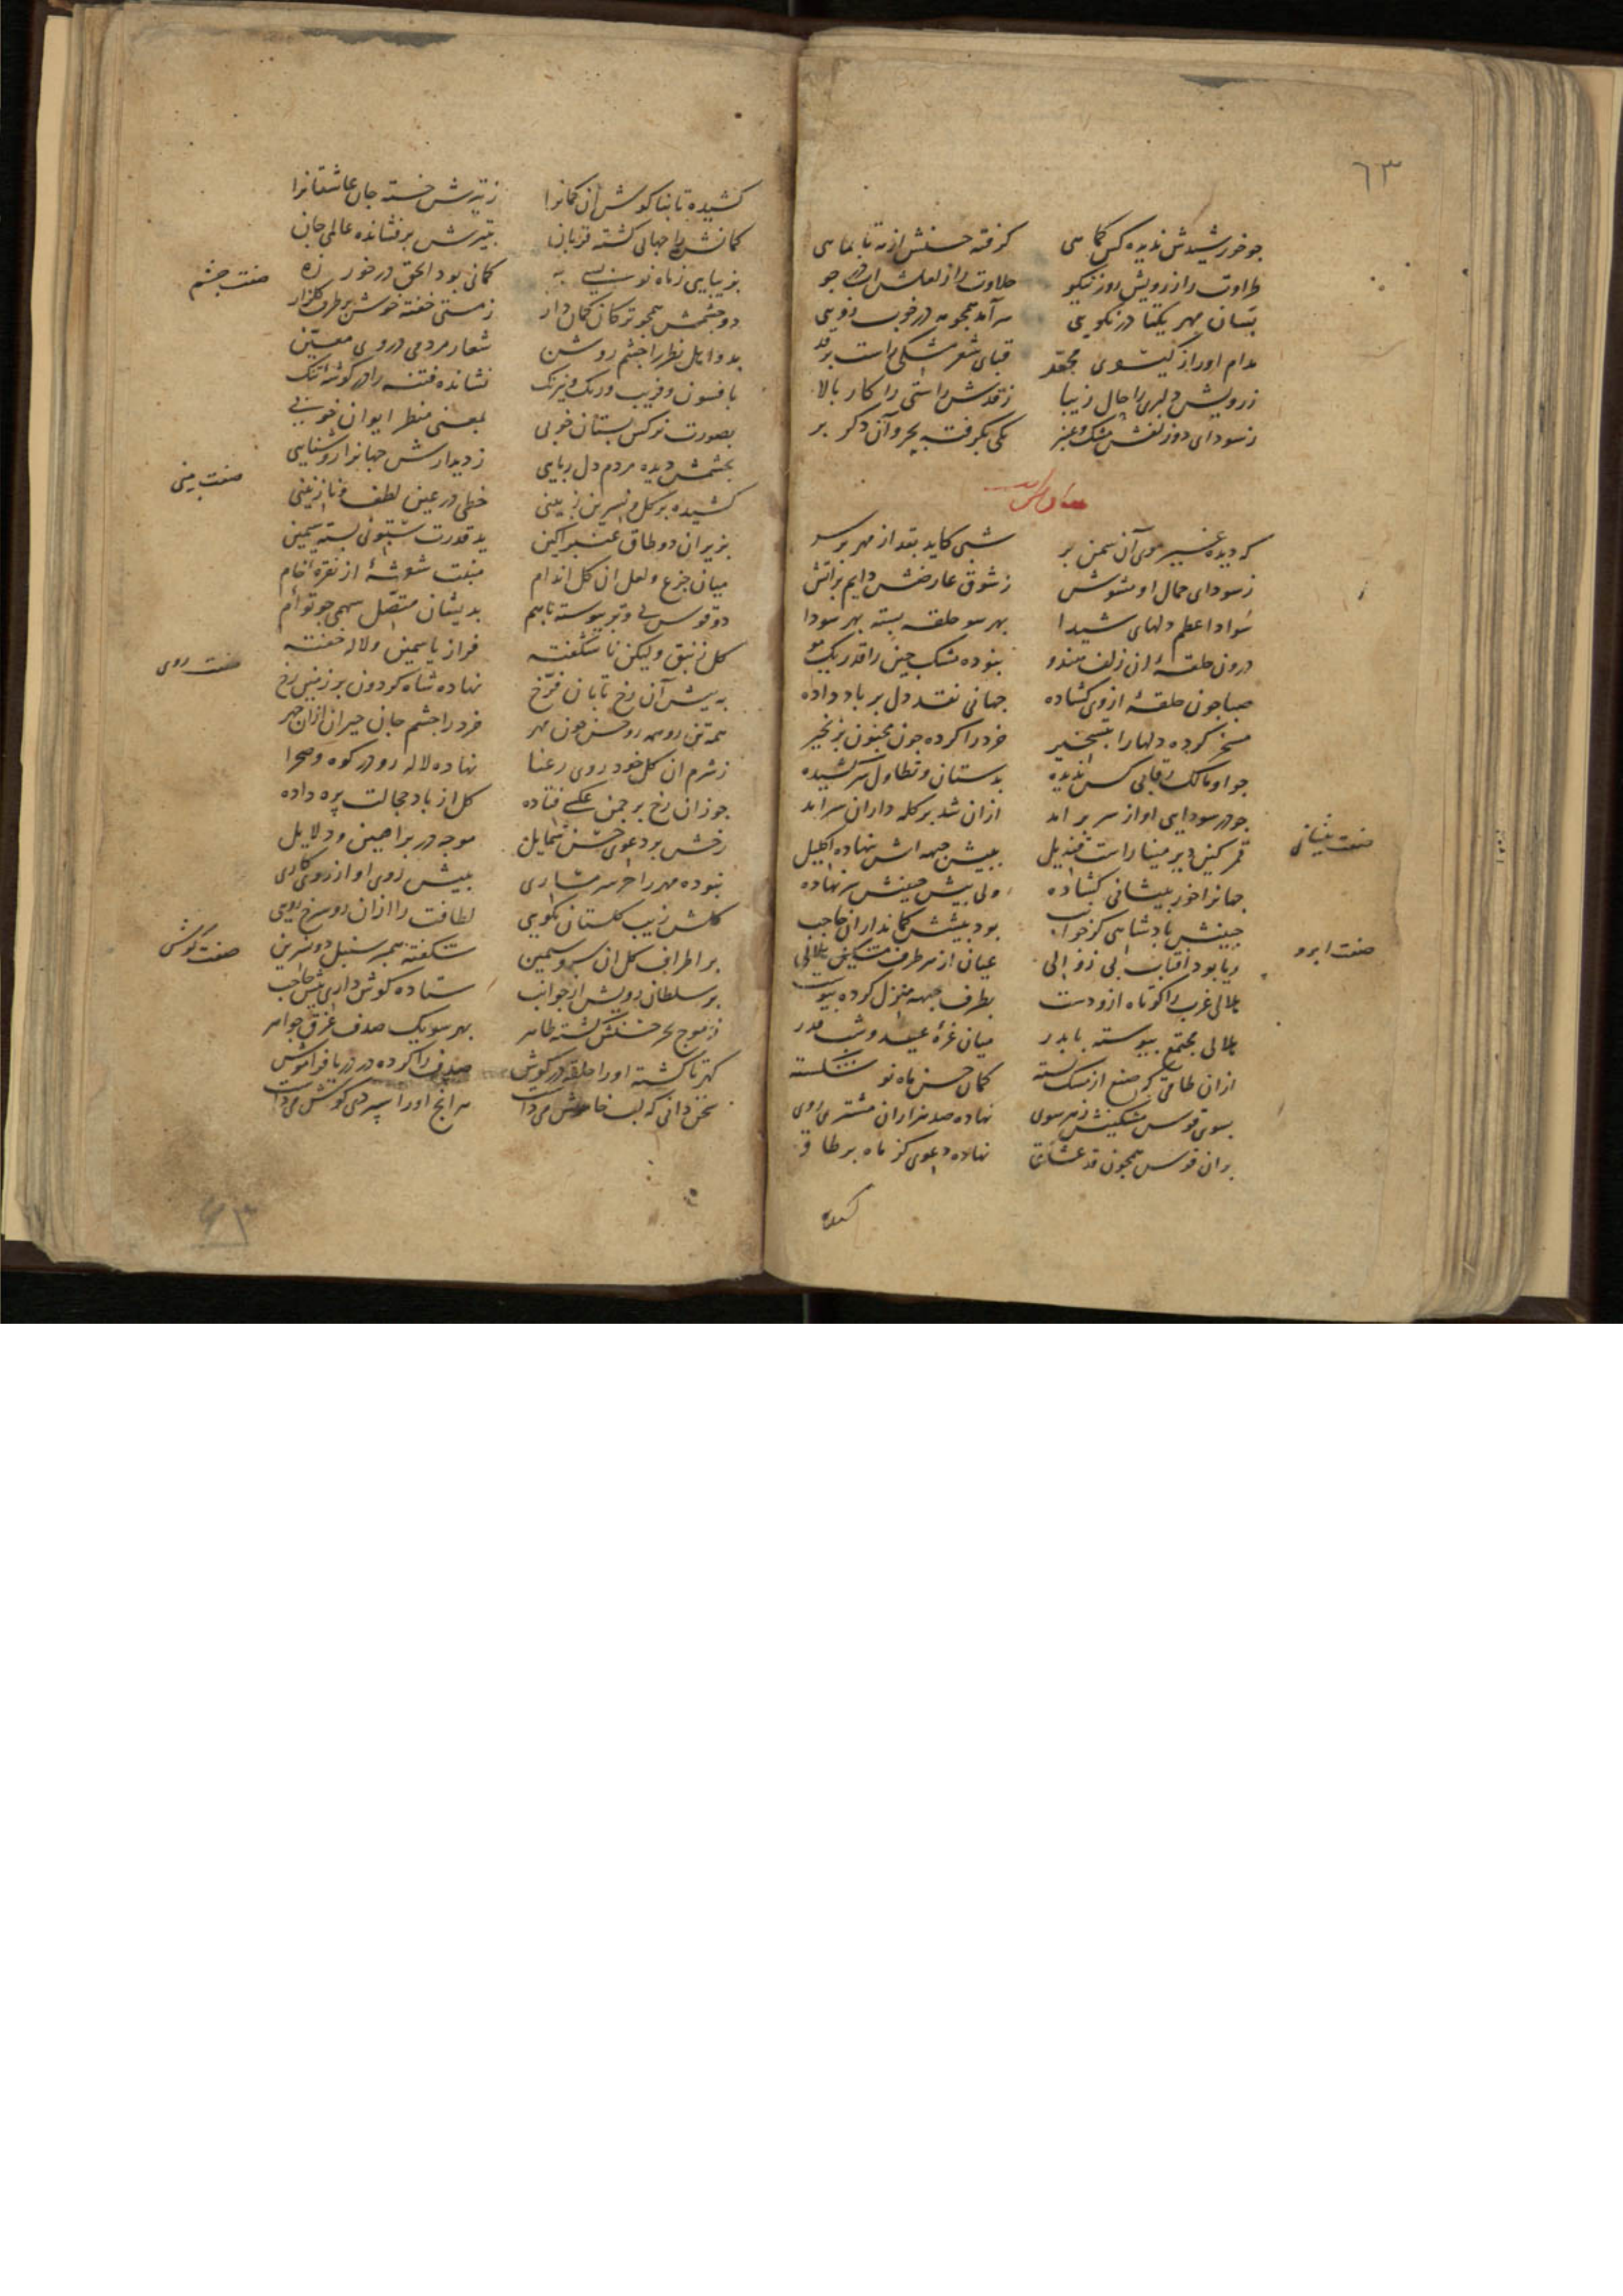 ٦٣
جو خورشیدش ندیده کس کماهی کرفته حسنش از مه تا بماهی
طراوت را از رویش روز نیکو حلاوت را از لعلش آب در جو
بسان مهر یکتا در نکویی سرآمد همجو مه در خوب رویی
مدام او را از کیسوی مجعد قبای شعر مشکی راست بر قد
ز رویش دلبری را حال زیبا ز قدش راستی را کار بالا
ز سودای دو زلفش مشک و عنبر یکی بکرفته بحر و آن دکر بر
که دیده غیر موی آن سمن بر شبی کاید بقد از مهر برسر
ز سودای جمال او مشوش ز شوق عارضش دایم بر آتش
سواد اعظم دلهای شیدا بهر سو حلقه بسته بهر سودا
درون حلقهٔ آن زلف هندو نبوده مشک چین را قدر یک مو
صبا جون حلقهٔ از وی کشاده جهانی نقد دل بر باد داده
مسخر کرده دلها را بتسخیر خرد را کرده جون مجنون بزنجیر
جو او مالک رقابی کس ندیده بدستان و تطاول سر کشیده
جو در سودایی او از سر بر آمد ازان شد بر کله داران سرآمد
صفت پیشانی
قمر کین دیر مینا راست قندیل بپیش جبهه اش بنهاده اکلیل
جهانرا خور بپیشانی کشاده ولی پیش جبینش سر نهاده
جبینش پادشاهی کز جوانب بود پیشش کمانداران حاجب
صفت ابرو
ربا بود آفتاب بی زوالی عیان از هر طرف مشکین هلالی
هلالی غرب را کوتاه ازو دست بطرف جبهه منزل کرده پیوست
هلالی مجتمع پیوسته با بدر میان غرهٔ عید و شب قدر
ازان طاقی که صنع از مشک بسته کمان حسن ماه نو شکسته
بسوی قوس مشکینش ز هر سوی نهاده صد هزاران مشتری روی
بران قوس همجون قد عشاق نهاده دعوی کز ماه بر طاق
کشیده
کشیده تا بنا کوش آن کمانرا ز تیرش خسته جان عاشقانرا
کمانش را جهانی کشته قربان بتیرش بر فشانده عالمی جان
بزیبایی ز ماه نو بسی به کمانی بود الحق در خور زه
صفت چشم
دو چشمش همجو ترکان کمان دار ز مستی خفته خوش بر طرف کلزار
بدو اهل نظر را چشم روشن شعار مردمی در وی معین
بافسون و فریب و رنک و نیرنک نشانده فتنه را در کوشهٔ تنک
بصورت نرکس بستان خوبی بمعنی منظر ایوان خوبی
بچشمش دیده مردم دل ربایی ز دیدارش جهانرا روشنایی
صفت بینی
کشیده بر کل و نسرین ز بینی خطی در عین لطف و نازنینی
بزیر آن دو طاق عنبر آکین ید قدرت ستونی بسته سیمین
میان جزع و لعل آن کل اندام مثبت شوشهٔ از نقرهٔ خام
دو قوس بی وتر پیوسته باهم بدیشان متصل سهمی جو توأم
کل زنبق ولیکن ناشکفته فراز یاسمین و لاله خفته
صفت روی
به پیش آن رخ تابان فرخ نهاده شاه کردون بر زمین رخ
همه تن رو همه رو حسن جون مهر خرد را جشم جان حیران ازان جهر
ز شرم آن کل خود روی رعنا نهاده لاله رو در کوه و صحرا
جو زان رخ بر جمن عکسی فتاده کل از باد خجالت پره داده
رخش بر دعوی حسن شمایل موجه در براهین و دلایل
نبوده مهر را جز شرمساری بپیش روی او از روی کاری
کلش زیب کلستان نکویی لطافت را ازان رو سرخ رویی
صفت کوش
بر اطراف کل آن سرو سیمین شکفته همبر سنبل دو نسرین
بر سلطان رویش از جوانب ستاده کوش داری پیش حاجب
ز موج بحر حسنش کشته ظاهر بهر سو یک صدف غرق جواهر
کهر تا کشته او را حلقه در کوش صدف را کرده در دریا فراموش
سخن دانی که لب خاموش می‌داشت هر آنج او را سپردی کوش می‌داشت
۶۳